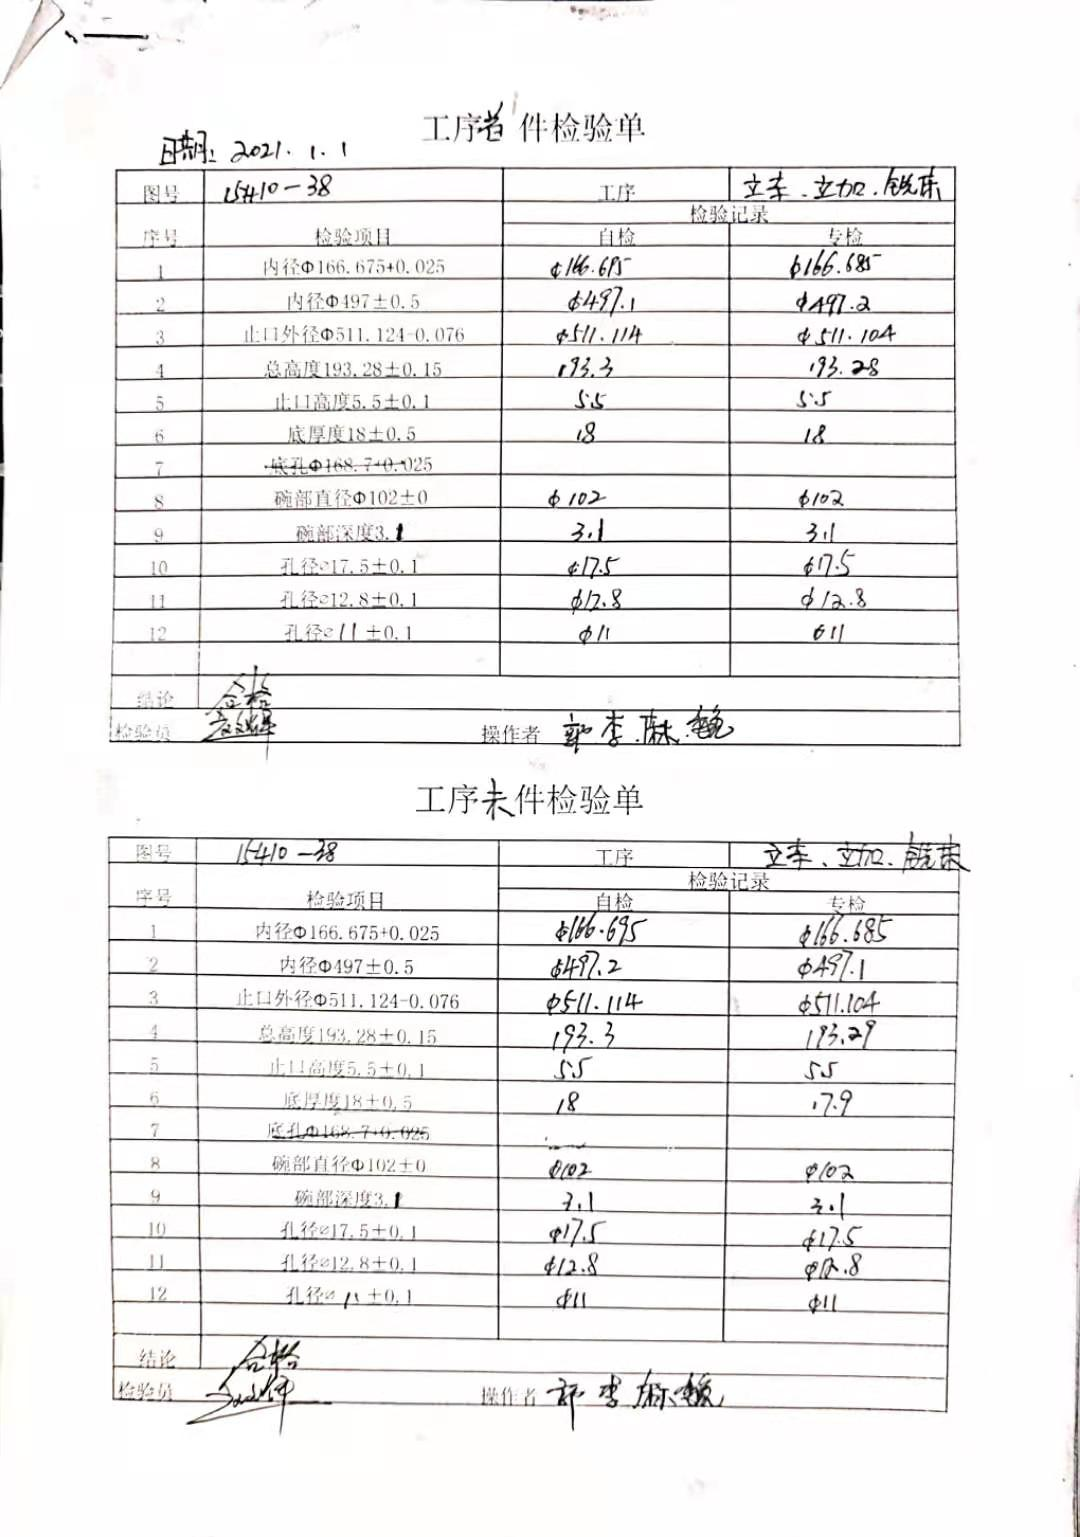 工序首件检验单
日期: 2021.1.1
图号 15410-38 工序 立车、立加、铣床
检验记录
序号 检验项目 自检 专检
1 内径Φ166.675+0.025 φ166.695 φ166.685
2 内径Φ497±0.5 φ497.1 φ497.2
3 止口外径Φ511.124-0.076 φ511.114 φ511.104
4 总高度193.28±0.15 193.3 193.28
5 止口高度5.5±0.1 5.5 5.5
6 底厚度18±0.5 18 18
7 底孔Φ168.7+0.025
8 碗部直径Φ102±0 φ102 φ102
9 碗部深度3.1 3.1 3.1
10 孔径⌀17.5±0.1 φ17.5 φ17.5
11 孔径⌀12.8±0.1 φ12.8 φ12.8
12 孔径⌀11±0.1 φ11 φ11
结论 合格
检验员 操作者 郭 李
工序末件检验单
图号 15410-38 工序 立车、立加、铣床
检验记录
序号 检验项目 自检 专检
1 内径Φ166.675+0.025 φ166.695 φ166.685
2 内径Φ497±0.5 φ497.2 φ497.1
3 止口外径Φ511.124-0.076 φ511.114 φ511.104
4 总高度193.28±0.15 193.3 193.29
5 止口高度5.5±0.1 5.5 5.5
6 底厚度18±0.5 18 17.9
7 底孔Φ168.7+0.025
8 碗部直径Φ102±0 φ102 φ102
9 碗部深度3.1 3.1 3.1
10 孔径⌀17.5±0.1 φ17.5 φ17.5
11 孔径⌀12.8±0.1 φ12.8 φ12.8
12 孔径⌀11±0.1 φ11 φ11
结论 合格
检验员 操作者 郭 李